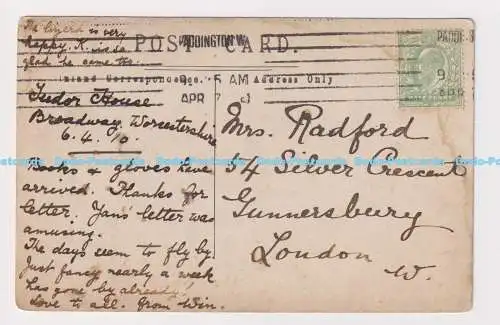 The lizard is very
happy. K. is so
glad he came too.
POST CARD.
PADDINGTON W.
Inland Correspondence. Address Only
9. 5 AM
APR 7
PADDI
9
APR
Tudor House
Broadway, Worcestershire
6.4.10.
Books & gloves have
arrived. Thanks for
letter. Jans letter was
amusing.
The days seem to fly by.
Just fancy nearly a week
has gone by already!
Love to all. from Win.
Mrs. Radford
54 Silver Crescent
Gunnersbury
London
W.
Dodo-Postcards Dodo-Postcards Dodo-Postcards Dodo-Postcards